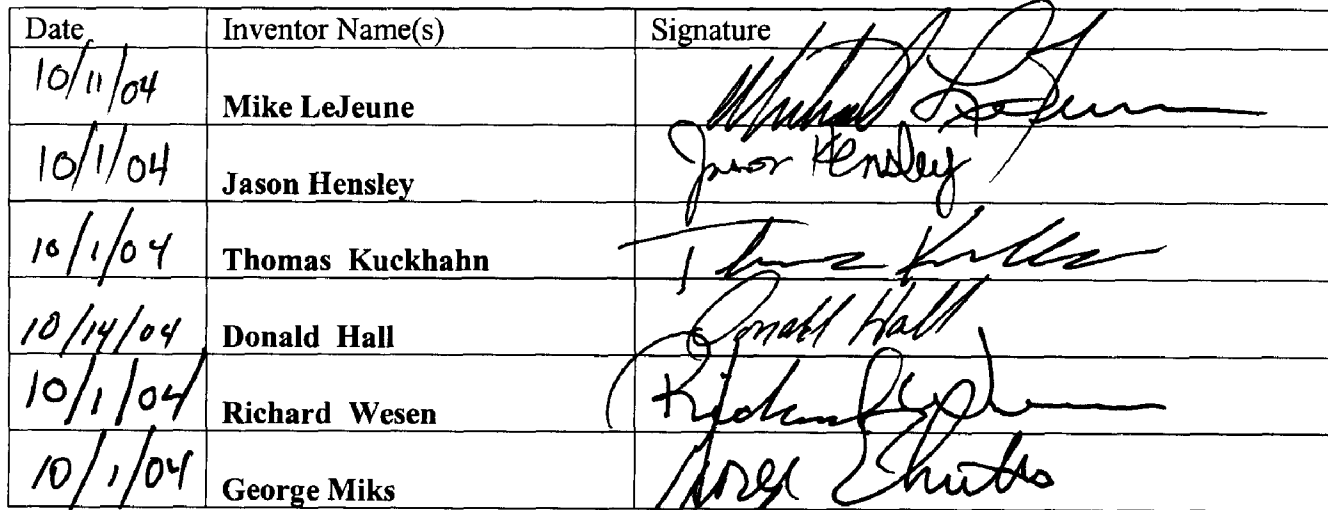 Date Inventor Name(s) Signature
10/11/04 Mike LeJeune Michael LeJeune
10/1/04 Jason Hensley Jason Hensley
10/1/04 Thomas Kuckhahn Thomas
10/14/04 Donald Hall Donald Hall
10/1/04 Richard Wesen Richard
10/1/04 George Miks George